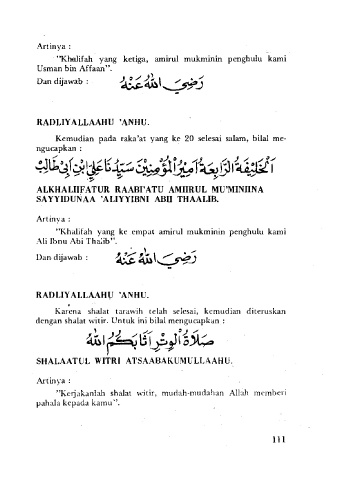 Artinya :
"Khalifah yang ketiga, amirul mukminin penghulu kami
Usman bin Affaan".
Dan dijawab : رَضِيَ اللّٰهُ عَنْهُ
RADLIYALLAAHU 'ANHU.
Kemudian pada raka'at yang ke 20 selesai salam, bilal me-
ngucapkan :
اَلْخَلِيْفَةُ الرَّابِعَةُ اَمِيْرُ الْمُؤْمِنِيْنَ سَيِّدُنَا عَلِيُّ ابْنُ اَبِيْ طَالِبْ
ALKHALIIFATUR RAABI'ATU AMIIRUL MU'MINIINA
SAYYIDUNAA 'ALIYYIBNI ABII THAALIB.
Artinya :
"Khalifah yang ke empat amirul mukminin penghulu kami
Ali Ibnu Abi Thalib".
Dan dijawab : رَضِيَ اللّٰهُ عَنْهُ
RADLIYALLAAHU 'ANHU.
Karena shalat tarawih telah selesai, kemudian diteruskan
dengan shalat witir. Untuk ini bilal mengucapkan :
صَلَاةُ الْوِتْرِ اَثَابَكُمُ اللّٰهُ
SHALAATUL WITRI ATSAABAKUMULLAAHU.
Artinya :
"Kerjakanlah shalat witir, mudah-mudahan Allah memberi
pahala kepada kamu".
111